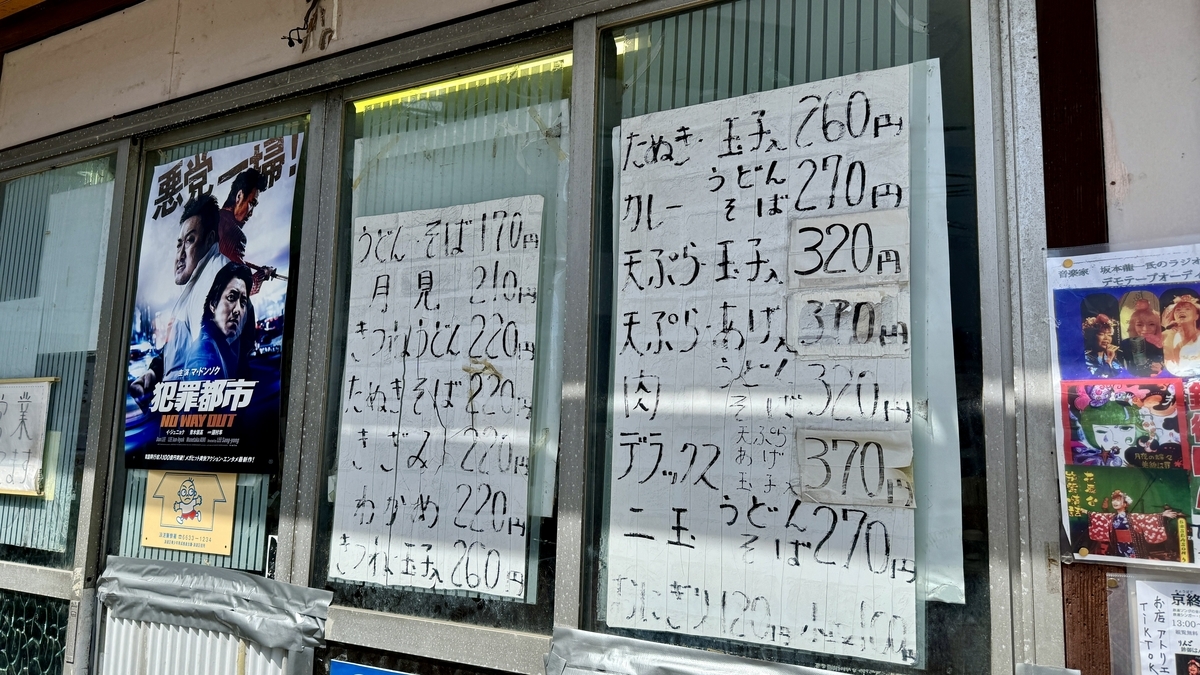 営業
ます。
悪党一掃!
主演 マ・ドンソク
犯罪都市
NO WAY OUT
うどん・そば170円
月見 210円
きつねうどん220円
たぬきそば220円
きざみ 220円
わかめ 220円
きつね・玉子入260円
たぬき・玉子入260円
カレー うどん そば 270円
天ぷら・玉子入 320円
天ぷら・あげ入 370円
肉 うどん そば 320円
デラックス 天ぷら あげ 玉子入 370円
二玉 うどん そば 270円
おにぎり120円
音楽家 坂本龍一氏のラジオ
デモテープオーディ
京終
13:00~
お店アトリエ
TIKTOK